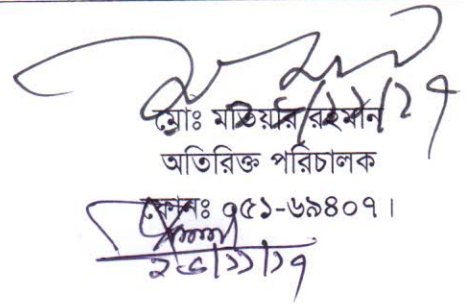 মোঃ মতিয়ার রহমান
অতিরিক্ত পরিচালক
ফোনঃ ০৫১-৬৯৪০৭।
২৬/১১/১৭